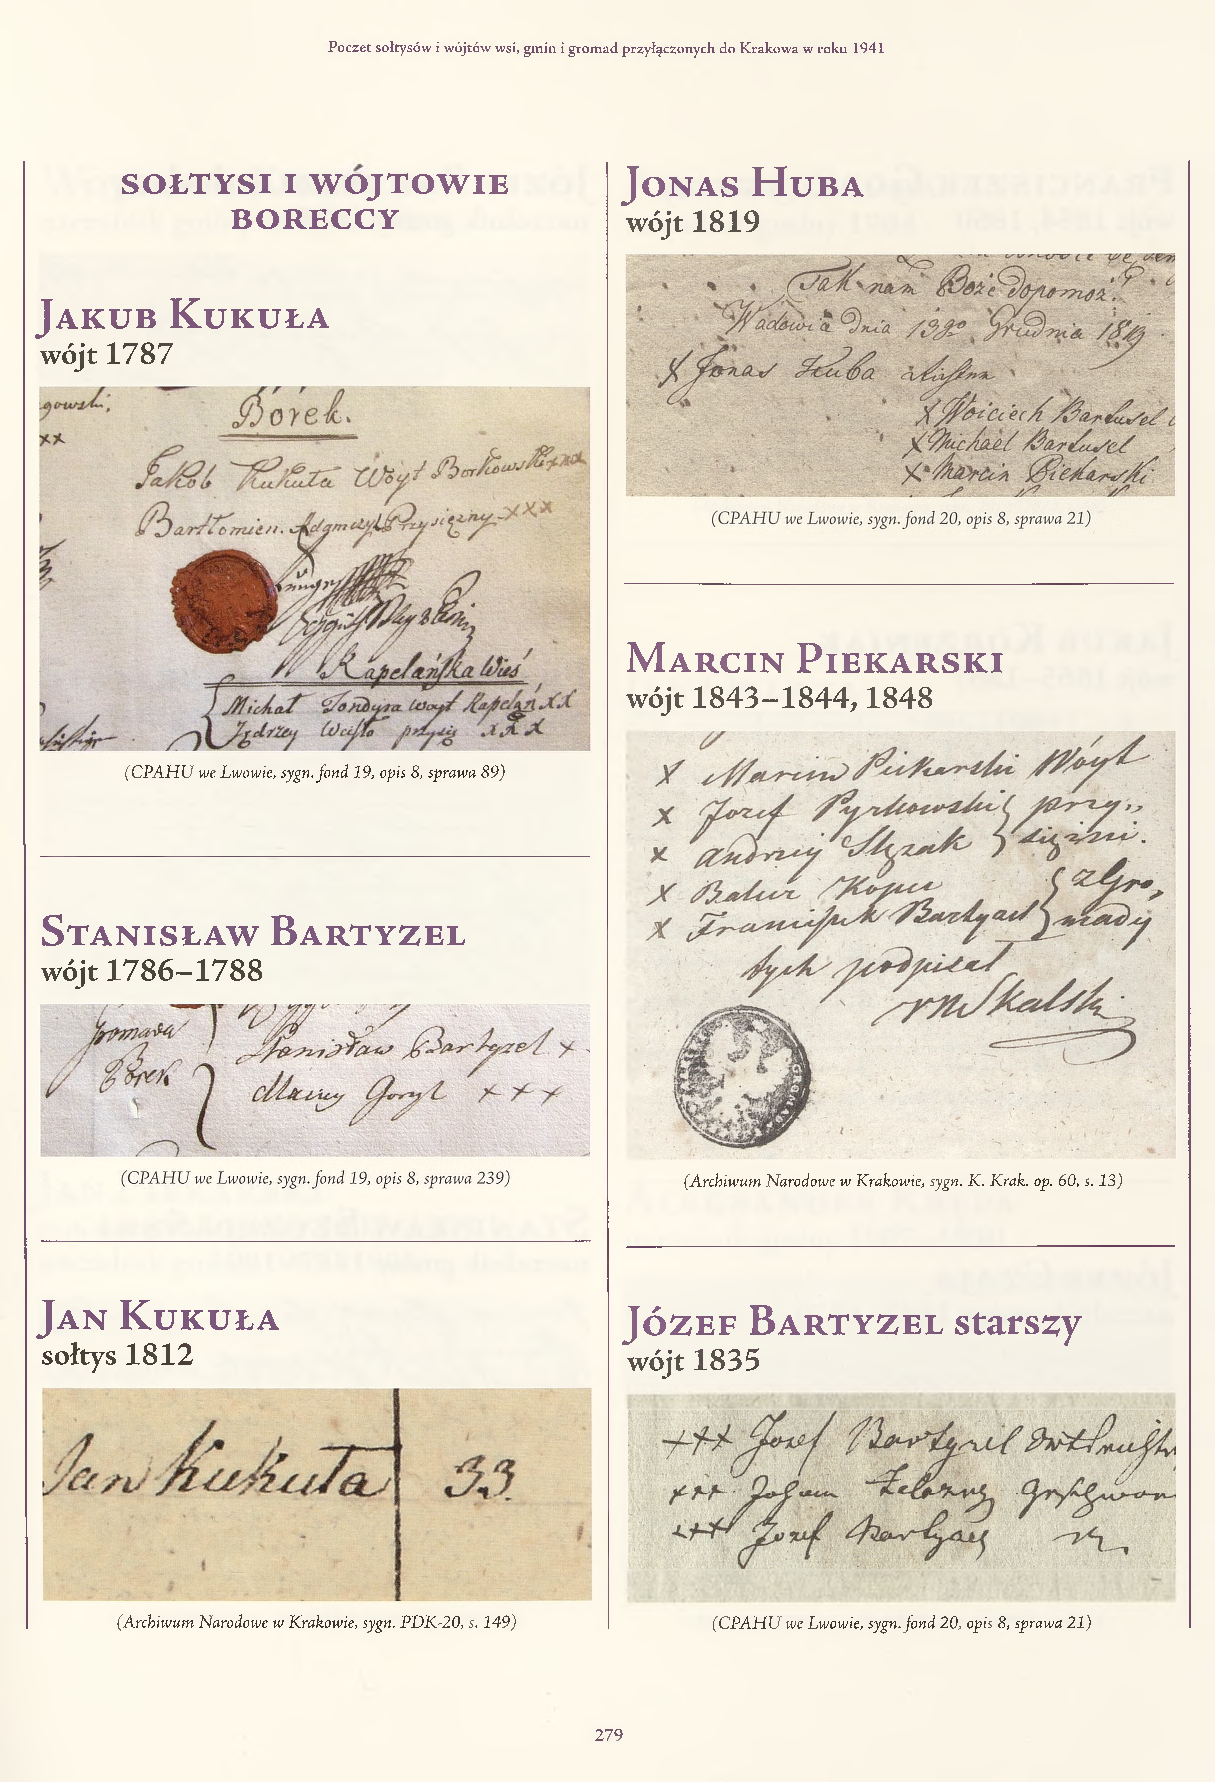 Poczet sołtysów i wójtów wsi, gmin i gromad przyłączonych do Krakowa w roku 1941
SOŁTYSI I WÓJTOWIE
BORECCY
JAKUB KUKUŁA
wójt 1787
gowski,
xx
Borek.
Jakob Kukuła Woyt Borkowski xxx
Bartłomien. Adamczyk Przysiężny xxx
Kapelańska Wieś
Michał Tondyra Woyt Kapelań xx
Jędrzey Wcisło przysię xxx
(CPAHU we Lwowie, sygn. fond 19, opis 8, sprawa 89)
STANISŁAW BARTYZEL
wójt 1786–1788
Gromada
Borek
Stanisław Bartyzel x
Maciey Goryl x x x
(CPAHU we Lwowie, sygn. fond 19, opis 8, sprawa 239)
JAN KUKUŁA
sołtys 1812
Jan Kukuła 33.
(Archiwum Narodowe w Krakowie, sygn. PDK-20, s. 149)
JONAS HUBA
wójt 1819
Tak nam Boże dopomoż.
dnia 13go Grudnia 1819
x Jonas Huba
x Woiciech Bartusel
x Michael Bartusel
x Marcin Piekarski
(CPAHU we Lwowie, sygn. fond 20, opis 8, sprawa 21)
MARCIN PIEKARSKI
wójt 1843–1844, 1848
x Marcin Piekarski Wóyt
x Jozef Pyrkowski przy„
x Andrzey Slęzak siężni.
x Balur Kopu z Gro,
x Franciszek Bartyzel mady
tych podpisał
Skalski
(Archiwum Narodowe w Krakowie, sygn. K. Krak. op. 60, s. 13)
JÓZEF BARTYZEL starszy
wójt 1835
xxx Josef Bartyzel Ortsricht
xxx Johann Zelazny Geschwor
xxx Jozef Bartyzel
(CPAHU we Lwowie, sygn. fond 20, opis 8, sprawa 21)
279